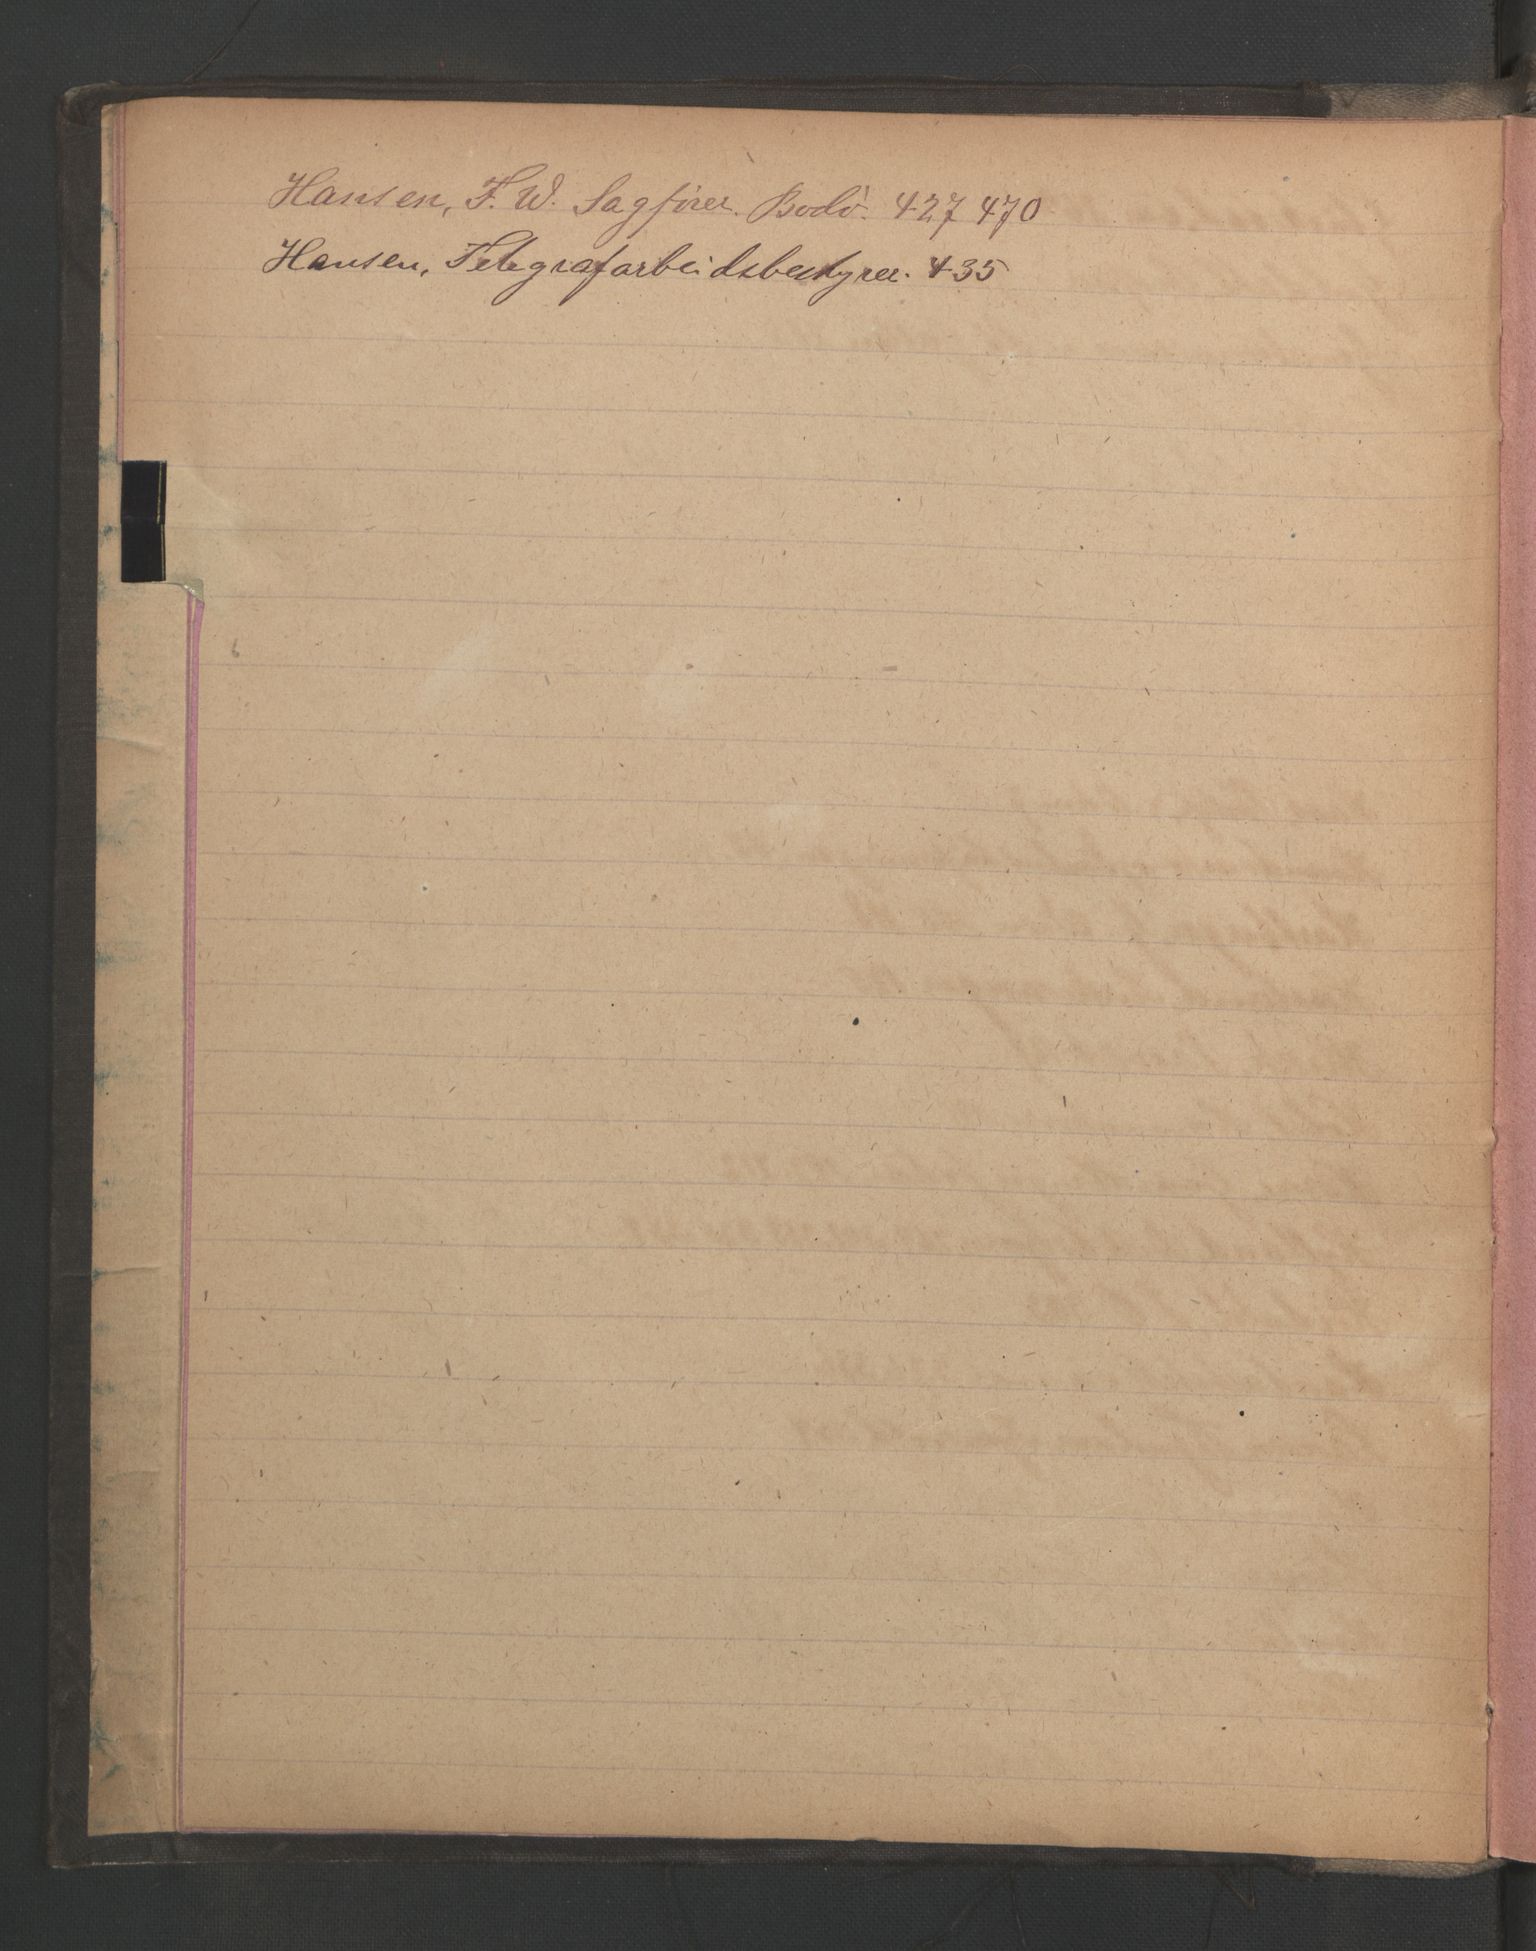 Hansen, F. W. Sagfører. Bodø. 427 470
Hansen, Telegrafarbeidsbestyrer. 435